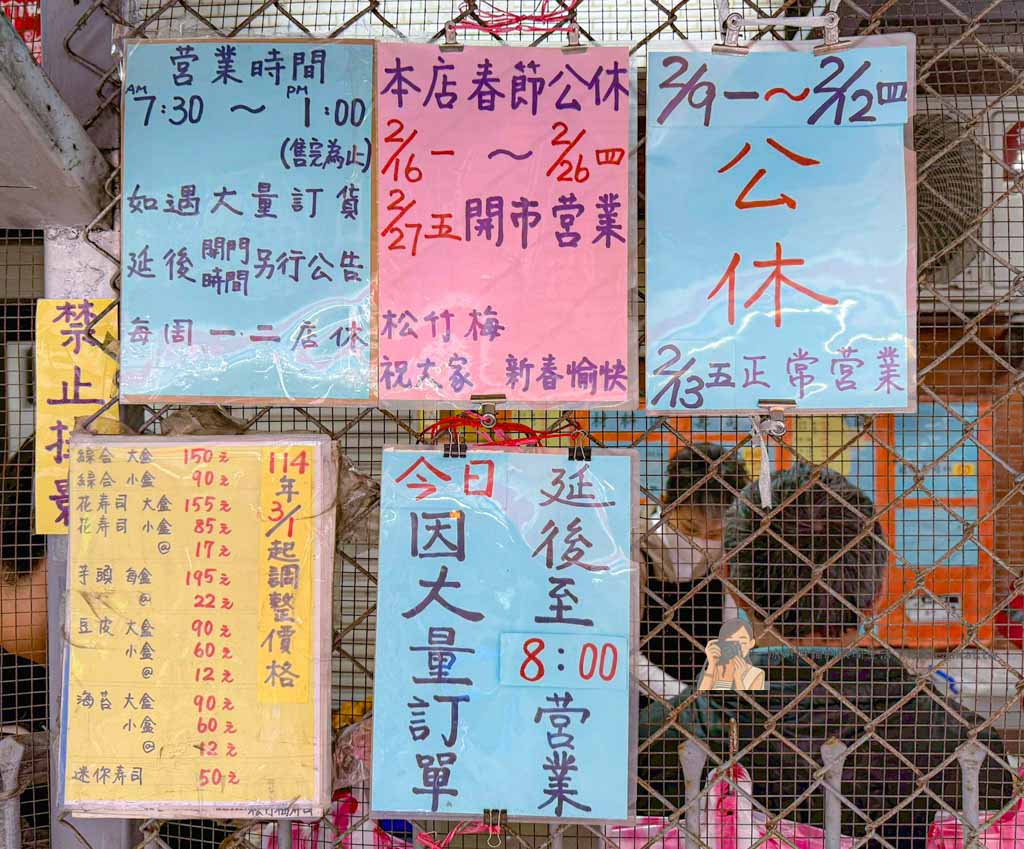 營業時間
AM 7:30 ～ PM 1:00
(售完為止)
如遇大量訂貨
延後開門時間另行公告
每周一·二店休
本店春節公休
2/16 一 ～ 2/26 四
2/27 五 開市營業
松竹梅
祝大家 新春愉快
2/9 一 ～ 2/12 四
公休
2/13 五 正常營業
禁止
綜合 大盒 150元
綜合 小盒 90元
花寿司 大盒 155元
花寿司 小盒 85元
@ 17元
芋頭 每盒 195元
@ 22元
豆皮 大盒 90元
小盒 60元
@ 12元
海苔 大盒 90元
小盒 60元
@ 12元
迷你寿司 50元
114年3/1起調整價格
今日
因大量訂單
延後至
8:00
營業